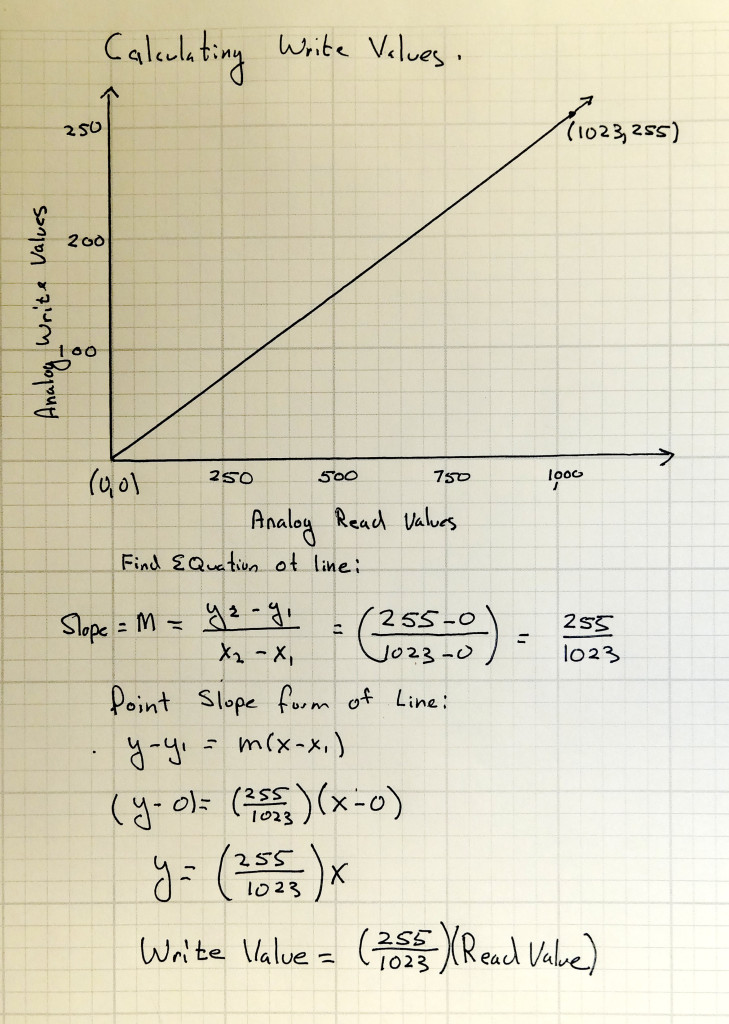 Calculating Write Values.
250
(1023,255)
200
100
Analog Write Values
(0,0)
250 500 750 1,000
Analog Read Values
Find EQuation of line:
Slope = M = y2-y1 / x2-x1 = (255-0 / 1023-0) = 255 / 1023
Point Slope form of Line:
. y-y1 = m(x-x1)
(y-0)= (255/1023)(x-0)
y= (255/1023)x
Write Value = (255/1023)(Read Value)